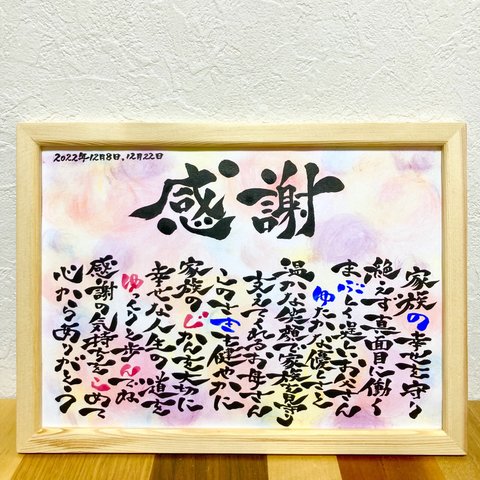 2022年12月8日、12月22日
感謝
家族の幸せを守り
絶えず真面目に働く
まぶしく逞しいお父さん
ゆたかな優しさと
温かな笑顔で家族を見守り
支えてくれるお母さん
このさきも健やかに
家族のじかんを大切に
幸せな人生の道を
ゆっくりと歩んでね
感謝の気持ちをこめて
心からありがとう